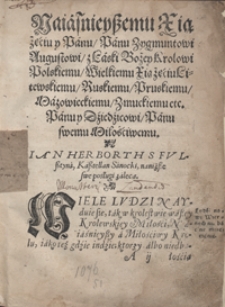 Naiáśnieyßemu Xią
żęciu y Pánu / Pánu Zygmuntowi
Augustowi / z Łáski Bożey Krolowi
Polskiemu / Wielkiemu Xiążęciu Li-
tewskiemu / Ruskiemu / Pruskiemu /
Mázowieckiemu / Zmuckiemu etc.
Pánu y Dziedzicowi / Pánu
swemu Miłościwemu.
IAN HERBORTH S FVL-
sztyná, Kásztellan Sánocki, naniższe
swe posługi záleca.
WIELE LVDZI NAY
duie sie, ták w krolestwie wászey
Krolewskiey Miłości Na-
iáśnieyszy á Miłościwy Kro-
lu, iáko też gdzie indzie, ktorzy álbo niedb-
A ij łością